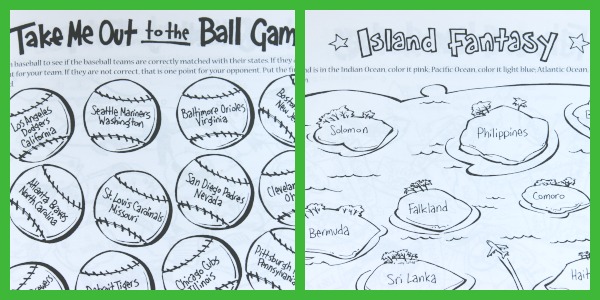 Take Me Out to the Ball Gam
baseball to see if the baseball teams are correctly matched with their states. If they a
t for your team. If they are not correct, that is one point for your opponent. Put the fi
Los Angeles
Dodgers
California
Seattle Mariners
Washington
Baltimore Orioles
Virginia
Bost
New J
Atlanta Braves
North Carolina
St. Louis Cardinals
Missouri
San Diego Padres
Nevada
Clevelan
Oh
Detroit Tigers
Chicago Cubs
Illinois
Pittsburgh
Pennsylvania
Island Fantasy
nd is in the Indian Ocean, color it pink; Pacific Ocean, color it light blue; Atlantic Ocean,
Solomon
Philippines
Falkland
Comoro
Bermuda
Sri Lanka
Hait